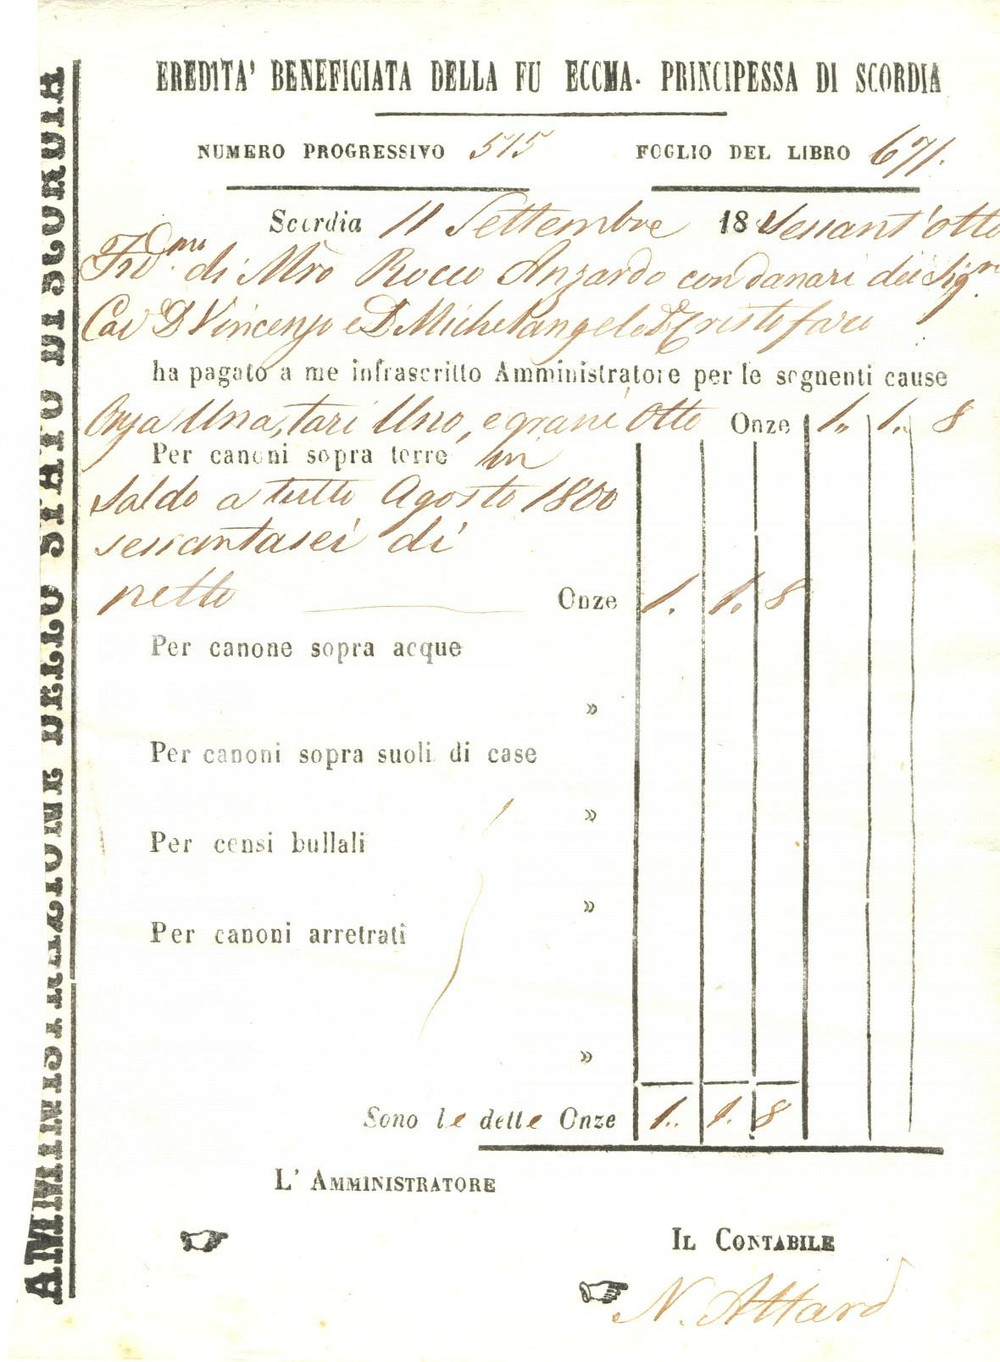 AMMINISTRAZIONE DELLO STATO DI SCORDIA
EREDITA' BENEFICIATA DELLA FU ECCMA. PRINCIPESSA DI SCORDIA
NUMERO PROGRESSIVO 515 FOGLIO DEL LIBRO 671.
Scordia 11 Settembre 18 sessant'otto
di Mro Rocco Anzardo con danari dei Sigri
Cav D Vincenzo e D Michelangelo De Cristofaro
ha pagato a me infrascritto Amministratore per le seguenti cause
Onza Una, tari Uno, e grani Otto Onze 1. 1. 8
Per canoni sopra terre in
saldo a tutto Agosto 1800
sessantasei di
netto Onze 1. 1. 8
Per canone sopra acque
»
Per canoni sopra suoli di case
»
Per censi bullali
»
Per canoni arretrati
»
Sono le dette Onze 1. 1. 8
L' AMMINISTRATORE
IL CONTABILE
N. Attard